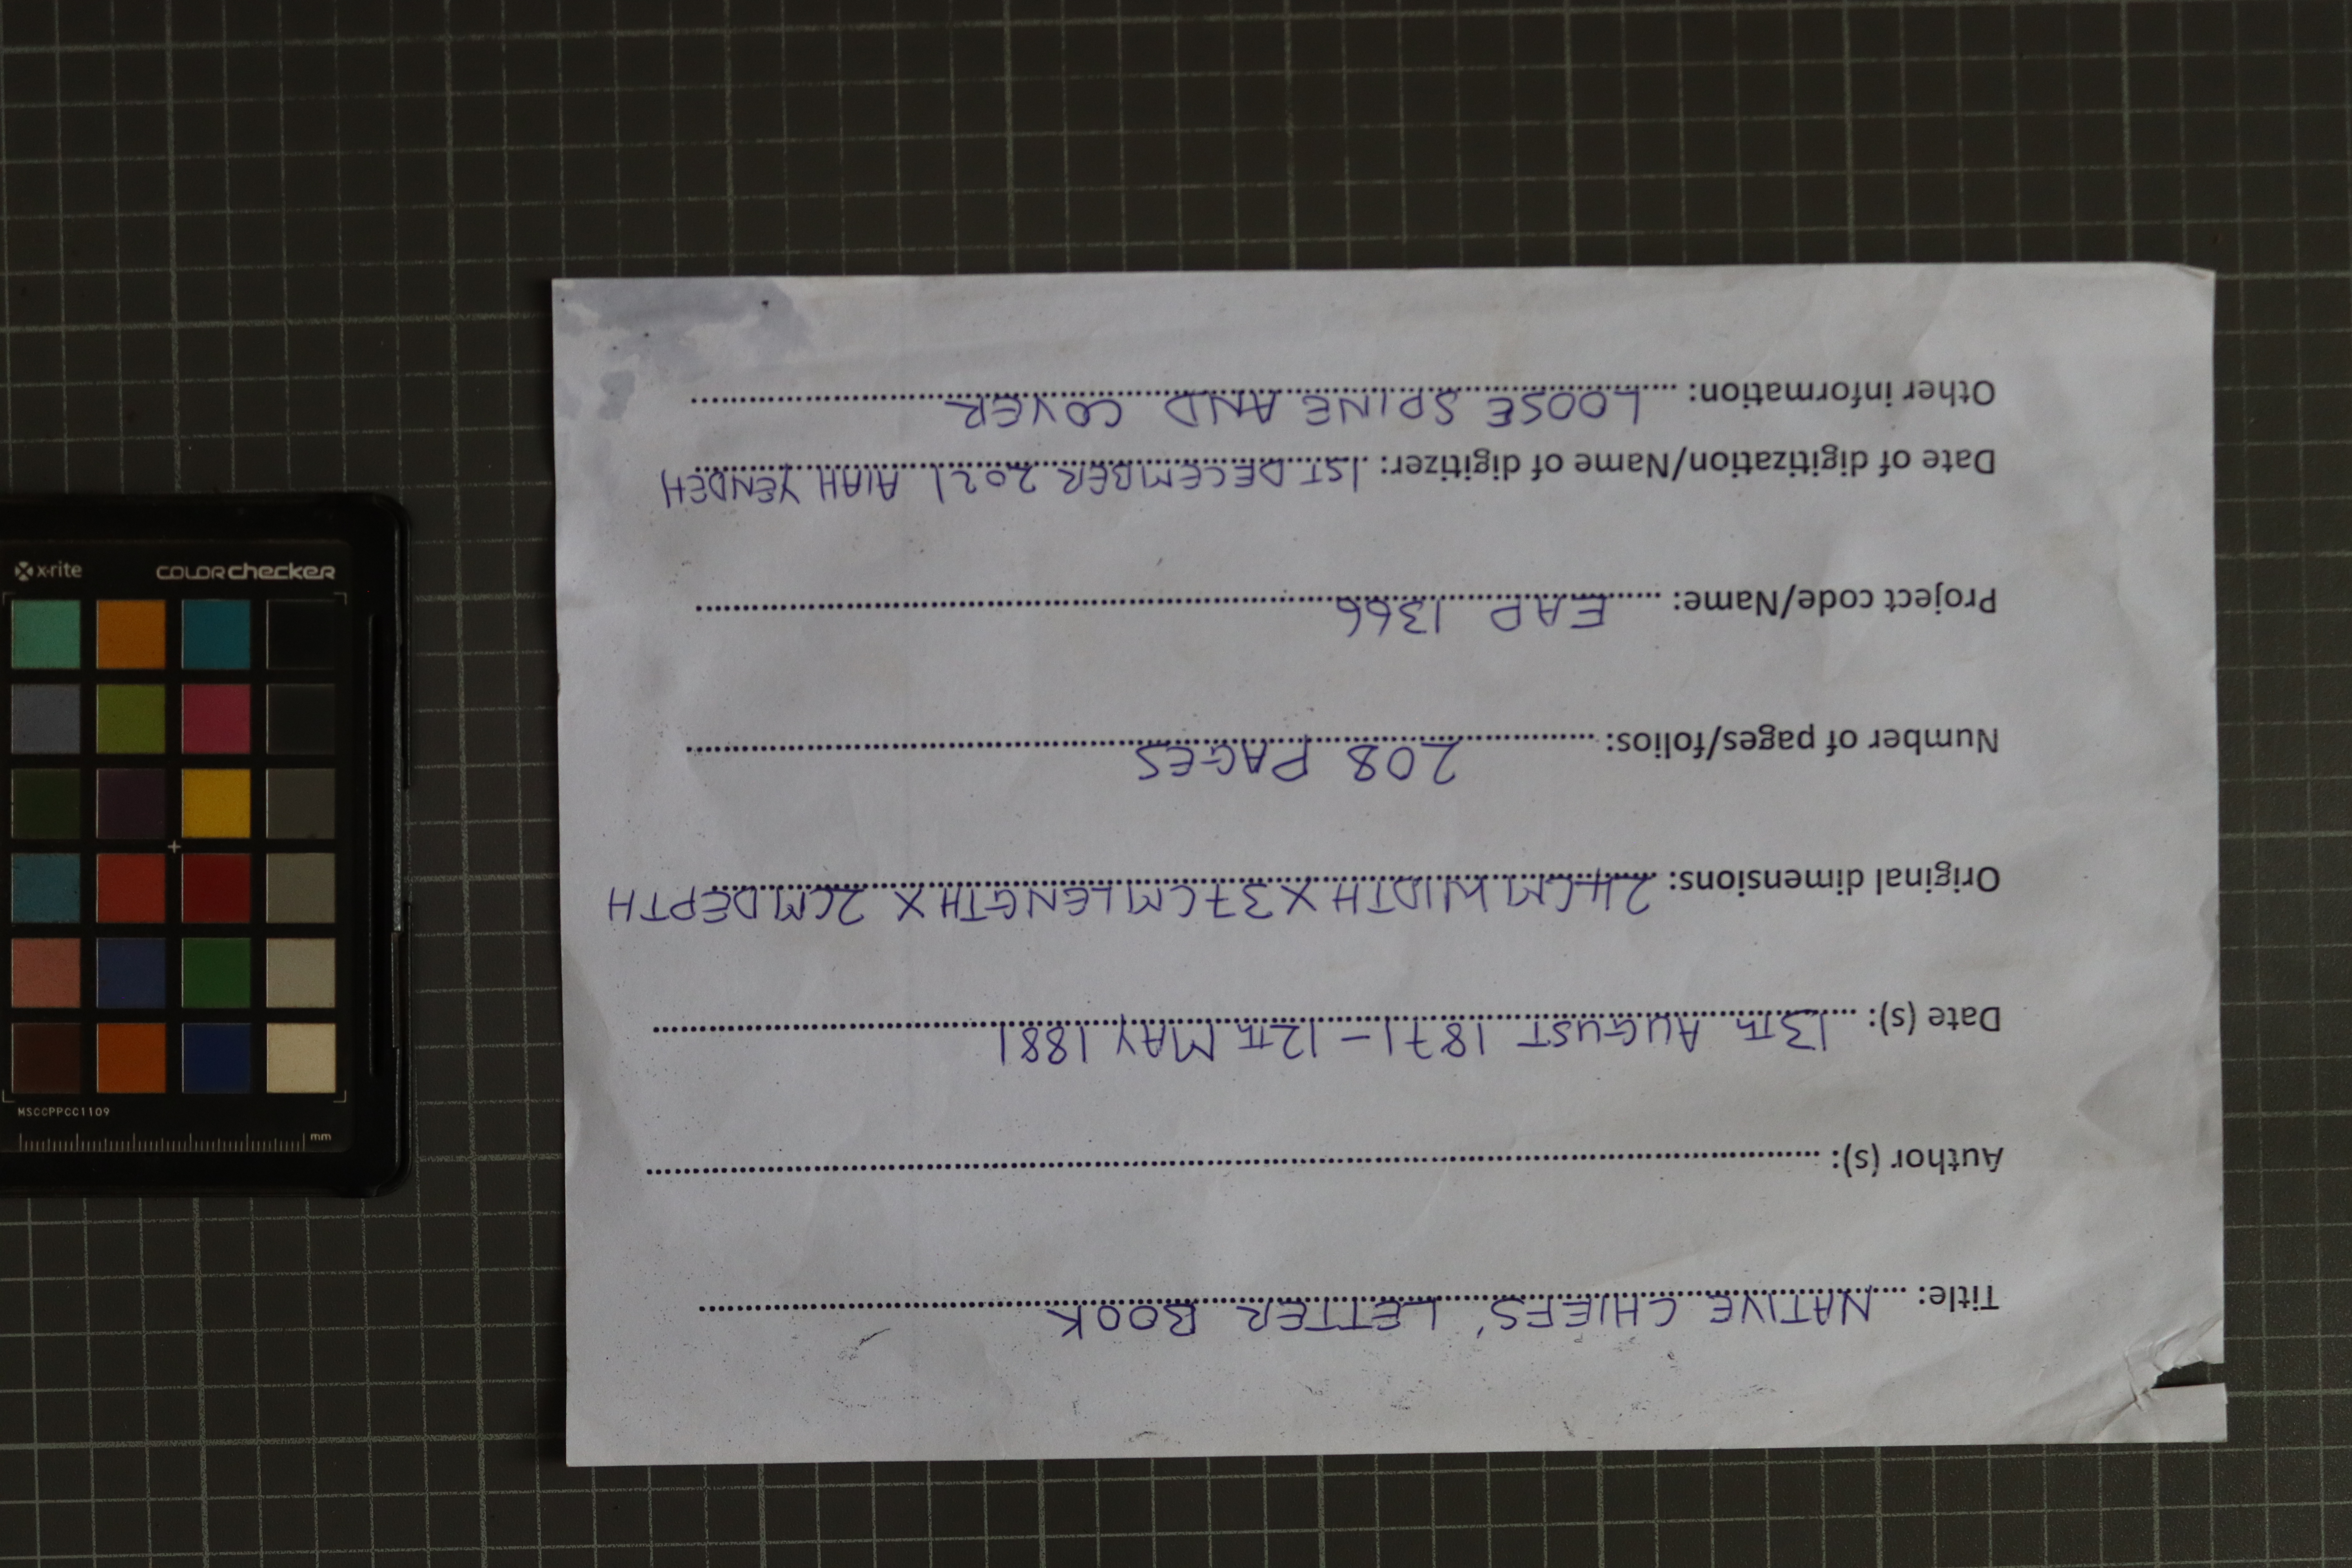 Title: NATIVE CHIEFS' LETTER BOOK
Author (s):
Date (s): 13TH AUGUST 1871 - 12TH MAY 1881
Original dimensions: 24CM WIDTH X 37CM LENGTH X 2CM DEPTH
Number of pages/folios: 208 PAGES
Project code/Name: EAP 1366
Date of digitization/Name of digitizer: 1ST DECEMBER 2021 AIAH YENDEH
Other information: LOOSE SPINE AND COVER
x-rite colorchecker
MSCCPPCC1109
mm